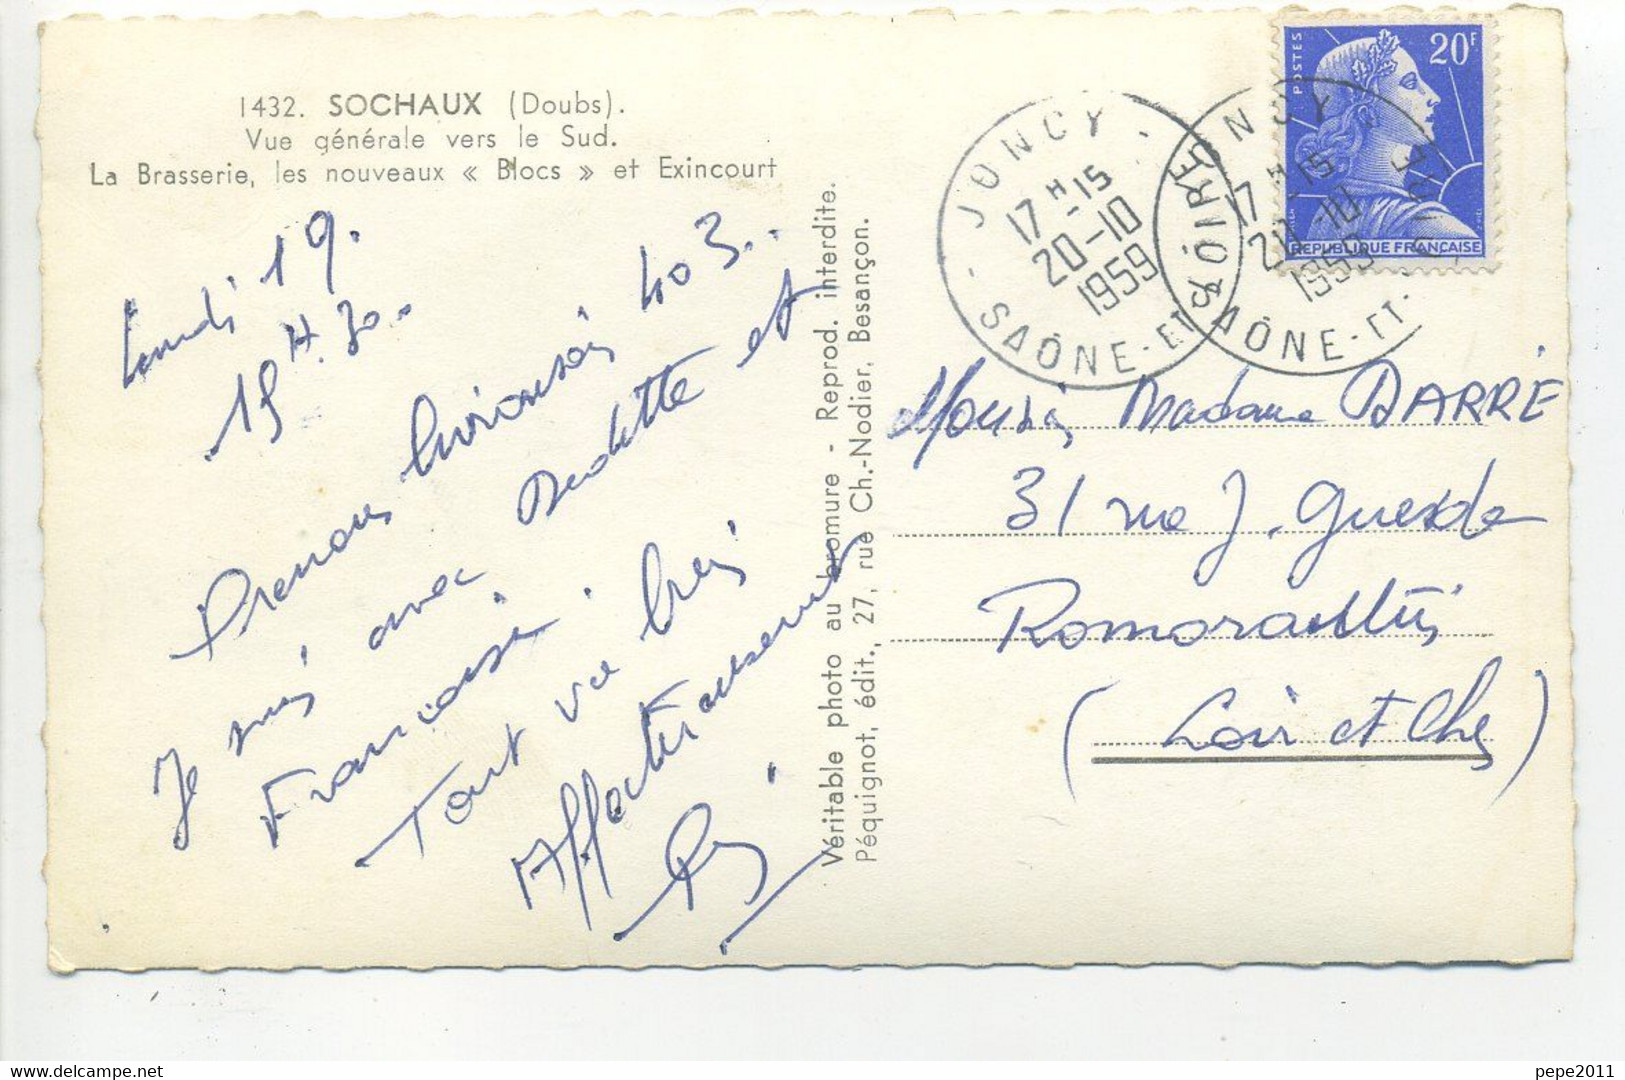 1432. SOCHAUX (Doubs).
Vue générale vers le Sud.
La Brasserie, les nouveaux « Blocs » et Exincourt
Lundi 19.
15 H. 30.
Prenons livraison 403..
Je suis avec Dedette et
Françoise.
Tout va bien
Affectueusement
Véritable photo au bromure - Reprod. interdite.
Péquignot, édit., 27, rue Ch.-Nodier, Besançon.
JONCY
17 H -15
20-10
1959
SAÔNE-ET-
JONCY
17 H -15
20-10
1959
SAÔNE-ET-LOIRE
POSTES
20F
REPUBLIQUE FRANÇAISE
Madame DARRÉ
31 rue J. Guesde
Romorantin
(Loir et Cher)
pepe2011